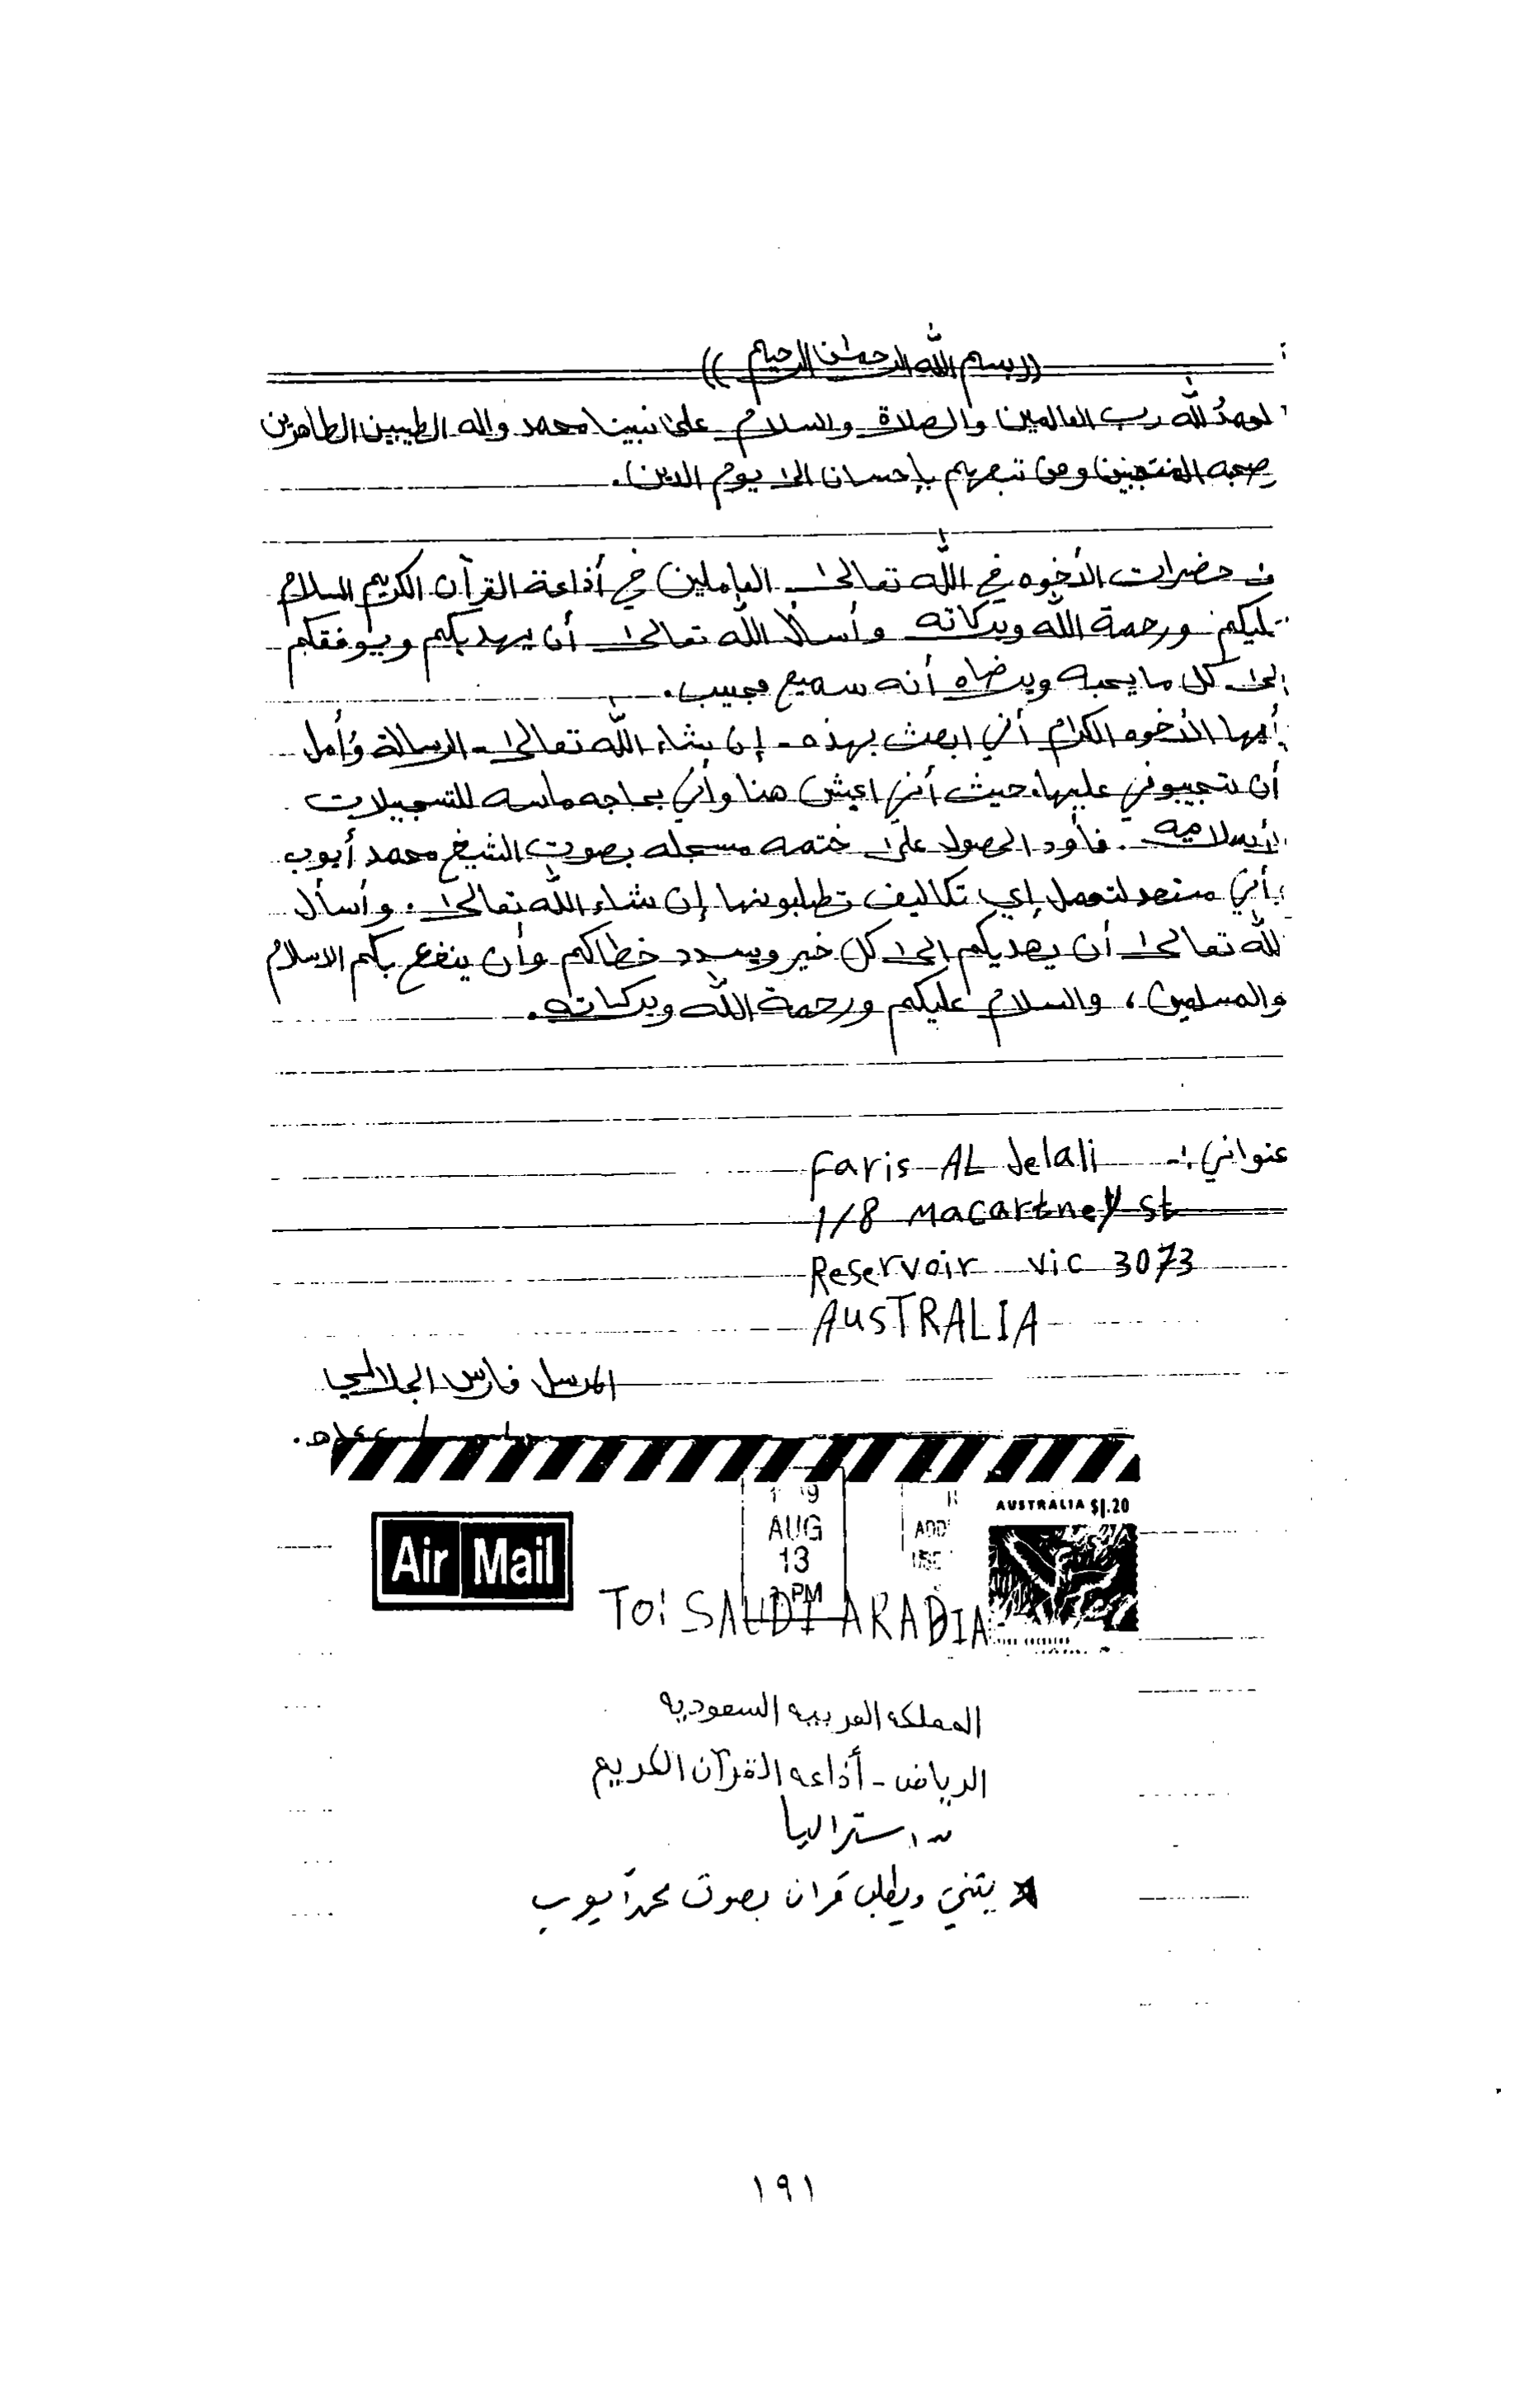 ((بسم الله الرحمن الرحيم))
لحمدُ لله رب العالمين والصلاة والسلام على نبينا محمد واله الطيبين الطاهرين
صحبه المنتجبين ومن تبعهم بإحسان الى يوم الدين.
حضرات الأخوه في الله تعالى العاملين في أذاعة القرآن الكريم السلام
ليكم ورحمة الله وبركاته وأسأل الله تعالى أن يهديكم ويوفقكم
إلى كل ما يحبه ويرضاه أنه سميع مجيب.
أيها الأخوه الكرام أني ابعث بهذه - إن شاء الله تعالى - الرسالة وأمل
أن تجيبوني عليها، حيث أنني اعيش هنا وأني بحاجه ماسه للتسجيلات
لأسلاميه. فأود الحصول على ختمه مسجله بصوت الشيخ محمد أيوب
أني مستعد لتحمل إي تكاليف تطلبونها إن شاء الله تعالى. وأسأل
لله تعالى أن يهديكم الى كل خير ويسدد خطاكم وأن ينفع بكم الاسلام
والمسلمين، والسلام عليكم ورحمة الله وبركاته.
عنواني:- Faris AL Jelali
1/8 Macartney st
Reservoir vic 3073
AUSTRALIA
المرسل فارس الجلالي
AUSTRALIA $1.20
AUG
13
PM
Air Mail
To: SAUDI ARABIA
المملكه العربيه السعوديه
الرياض - أذاعه القرآن الكريم
استراليا
يثني ويطلب قران بصوت محمد أيوب
١٩١